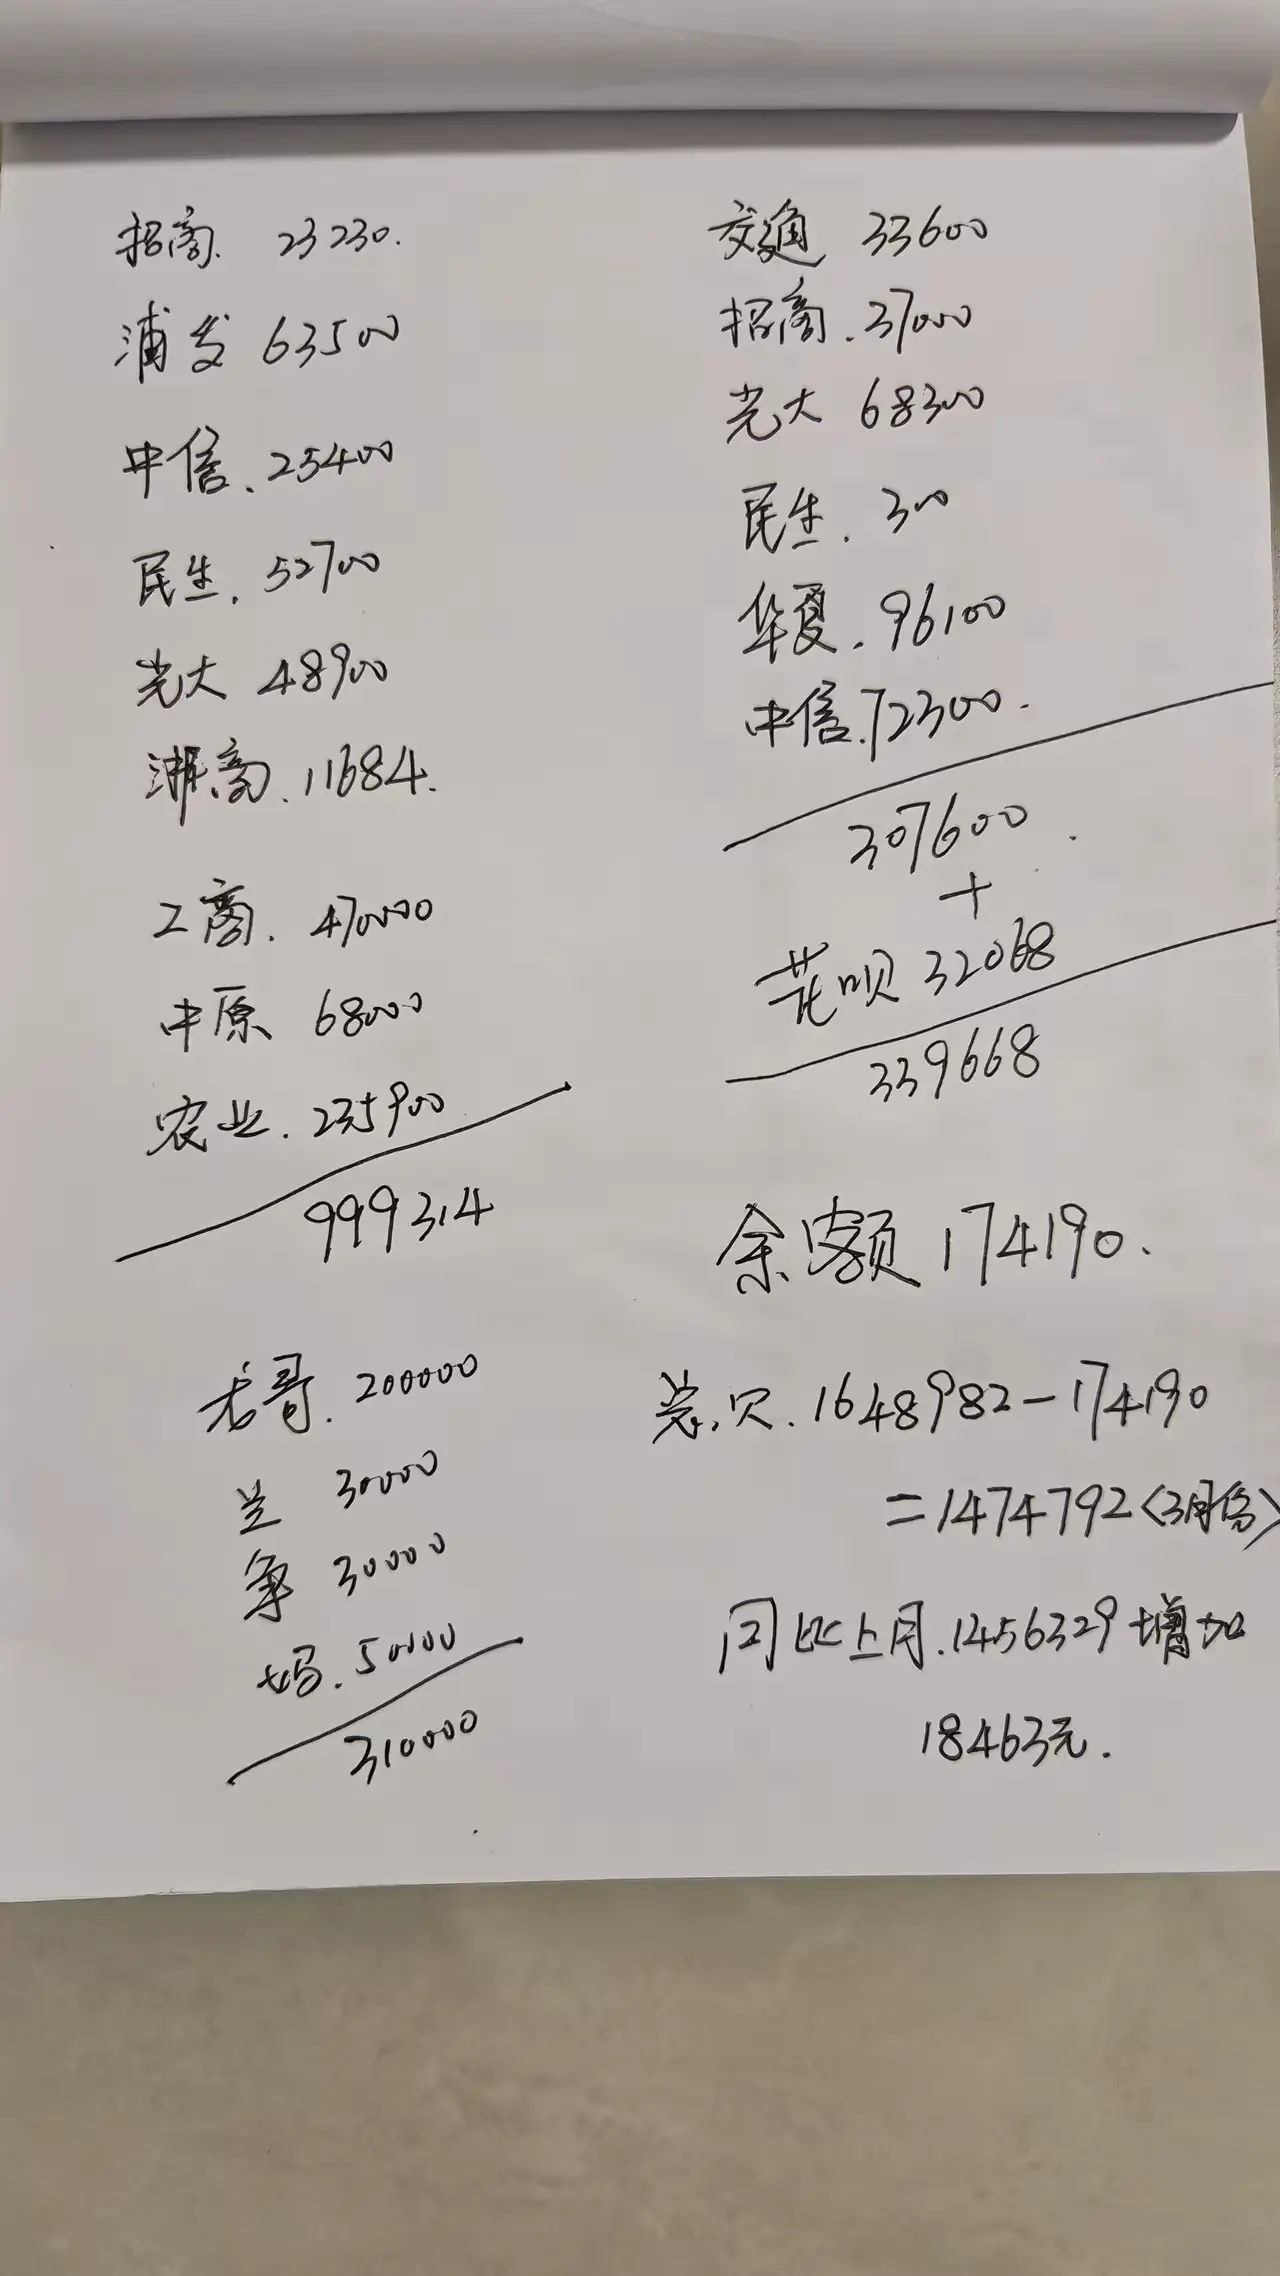 招商. 23230.
浦发 63500
中信. 25400
民生. 52700
光大 48900
浙商. 11684.
工商. 470000
中原 68000
农业. 235900
999314
老哥. 200000
兰 30000
军 30000
妈. 50000
310000
交通 33600
招商. 37000
光大 68300
民生. 300
华夏. 96100
中信. 72300.
307600.
+
花呗 32068
339668
余额 174190.
总欠. 1648982-174190
=1474792(3月份)
同比上月. 1456329增加
18463元.